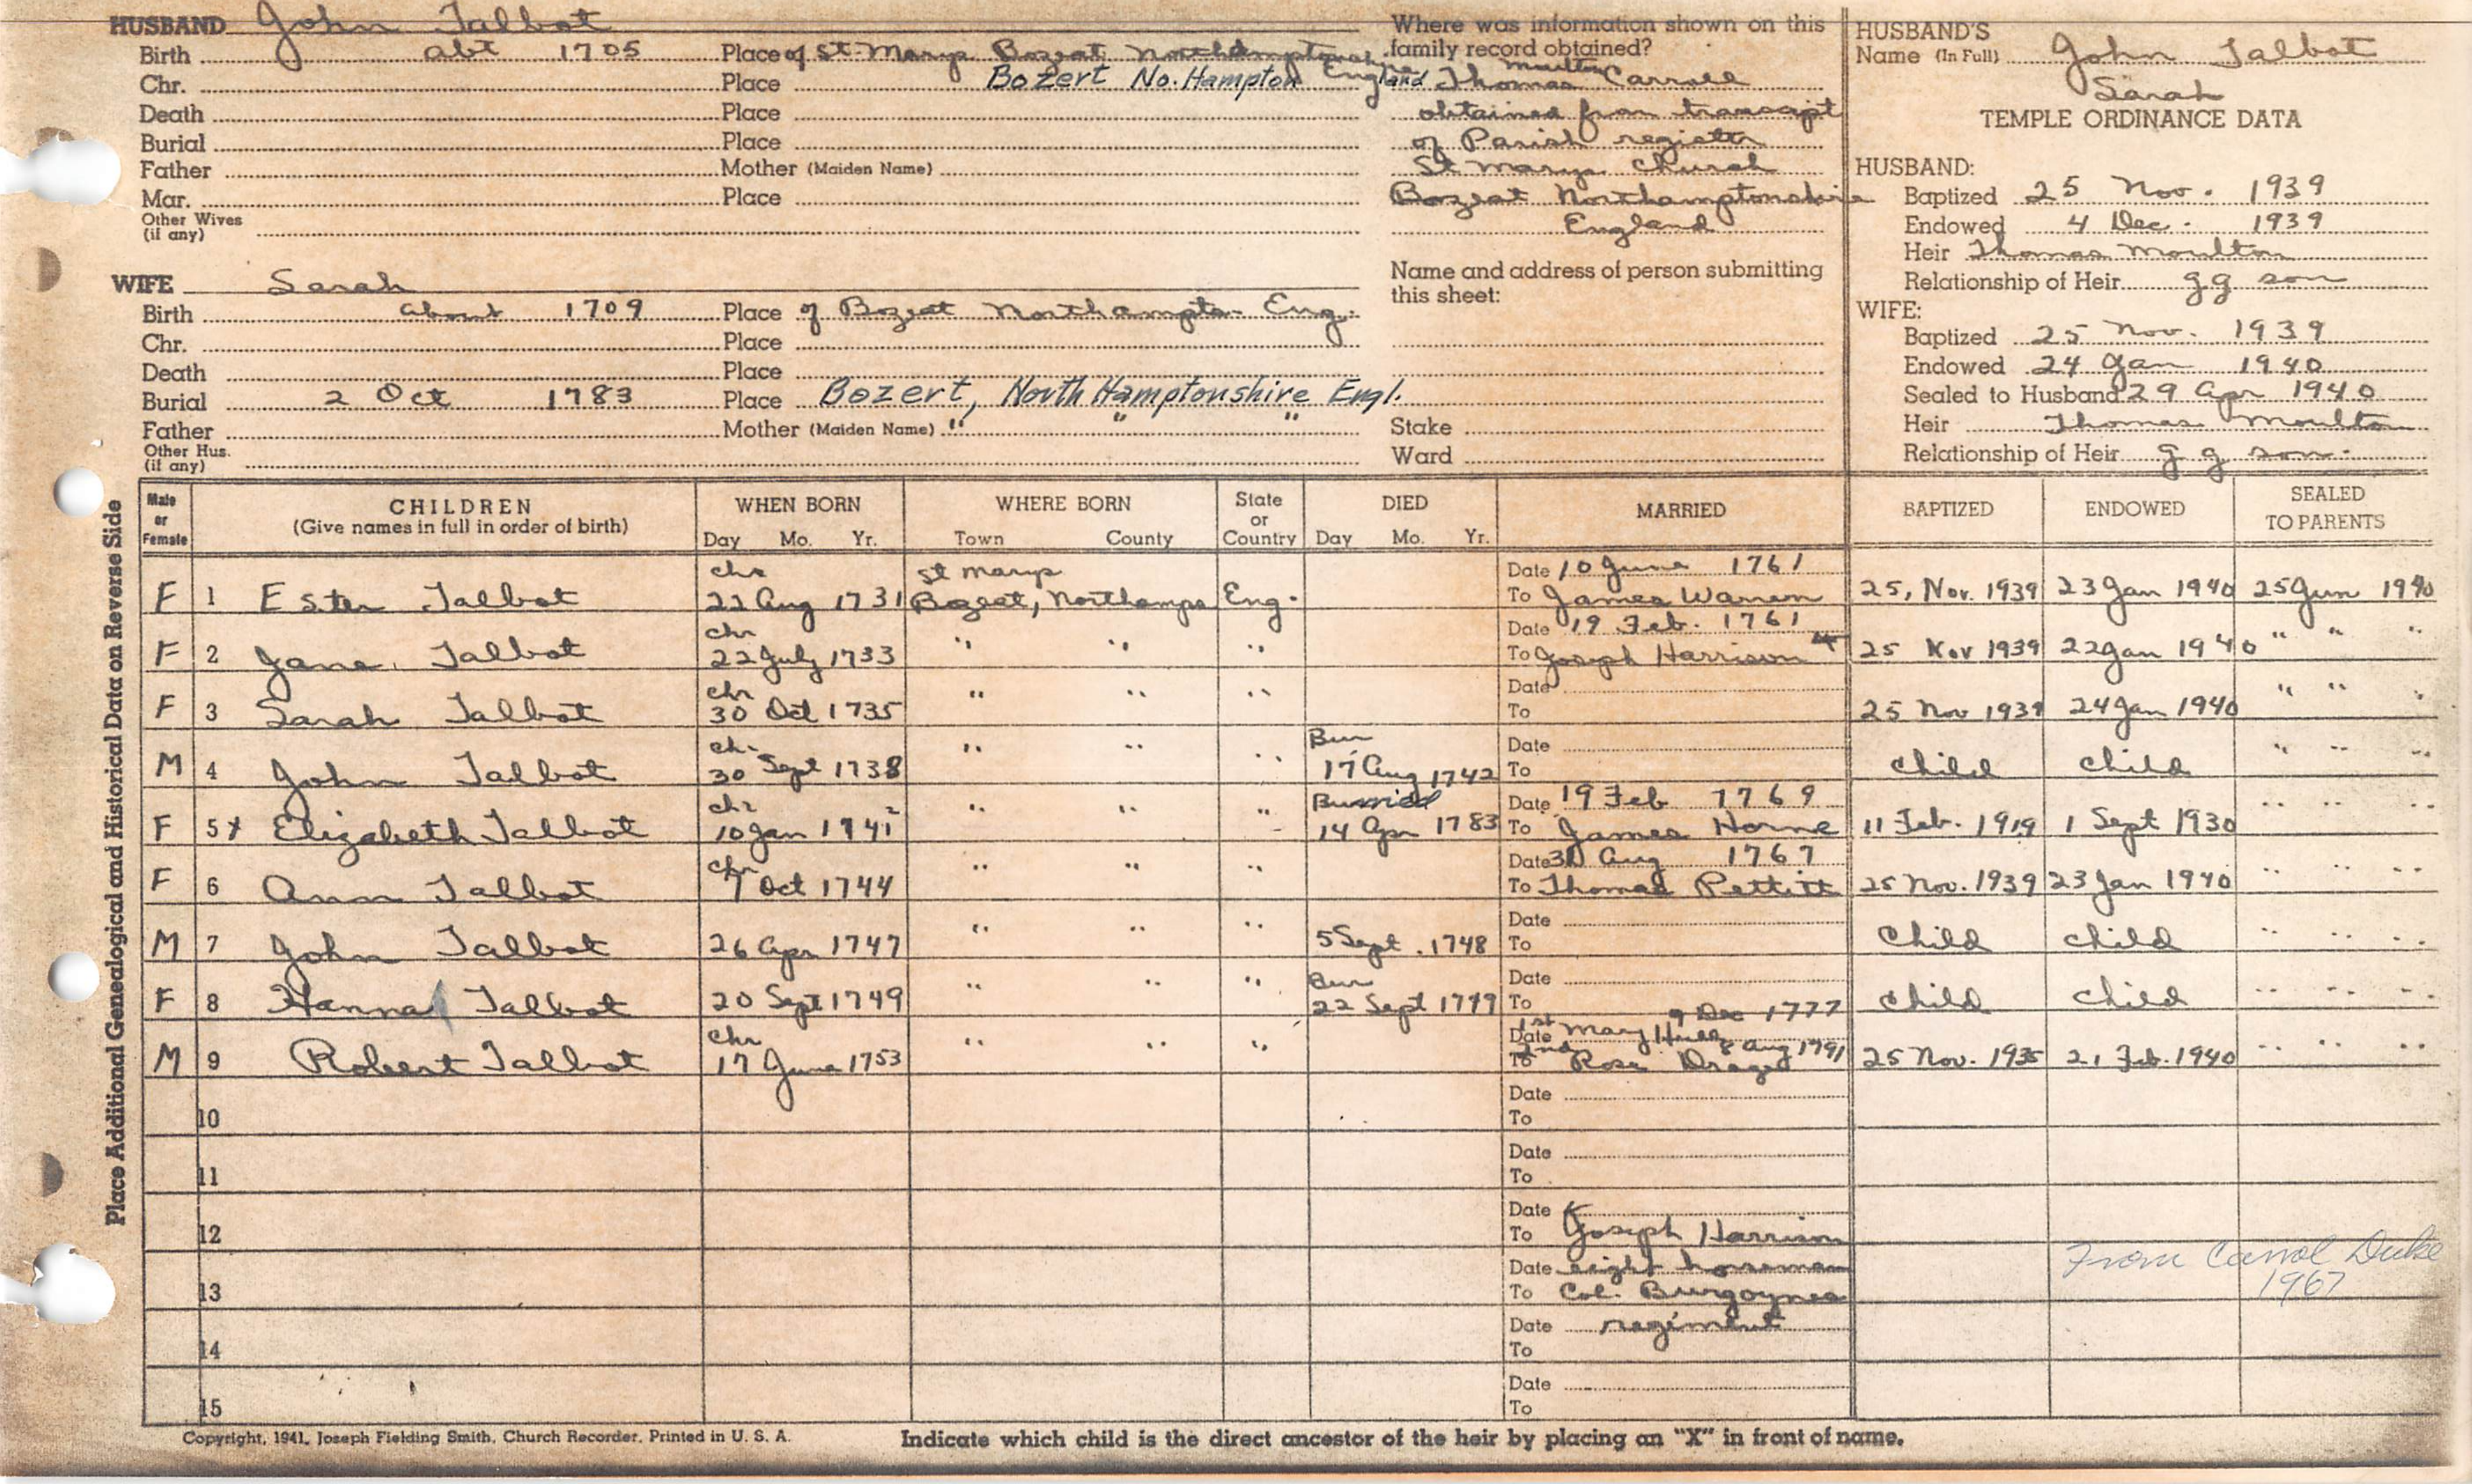 HUSBAND John Talbot
Birth abt 1705 Place of St. Marys Bozeat Northamptonshire
Chr. Place Bozert No. Hampton England
Death Place
Burial Place
Father Mother (Maiden Name)
Mar. Place
Other Wives (if any)
WIFE Sarah
Birth about 1709 Place of Bozeat Northampto- Eng.
Chr. Place
Death Place
Burial 2 Oct 1783 Place Bozert, North Hamptonshire Engl.
Father Mother (Maiden Name) " " "
Other Hus. (if any)
Where was information shown on this
family record obtained?
Thomas Moulton Carroll
obtained from transcipt
of Parish register
St Marys Church
Bozeat Northamptonshire
England
Name and address of person submitting
this sheet:
Stake
Ward
HUSBAND'S
Name (In Full) John Talbot
Sarah
TEMPLE ORDINANCE DATA
HUSBAND:
Baptized 25 Nov. 1939
Endowed 4 Dec. 1939
Heir Thomas Moulton
Relationship of Heir g g son
WIFE:
Baptized 25 Nov. 1939
Endowed 24 Jan 1940
Sealed to Husband 29 Apr 1940
Heir Thomas Moulton
Relationship of Heir g g son.
Place Additional Genealogical and Historical Data on Reverse Side
Male or Female CHILDREN (Give names in full in order of birth) WHEN BORN Day Mo. Yr. WHERE BORN Town County State or Country DIED Day Mo. Yr. MARRIED BAPTIZED ENDOWED SEALED TO PARENTS
F 1 Ester Talbot chr 22 Aug 1731 St Marys Bozeat, Northamps Eng. Date 10 June 1761 To James Warren 25, Nov. 1939 23 Jan 1940 25 Jun 1940
F 2 Jane Talbot chr 22 July 1733 " " " Date 19 Feb. 1761 To Joseph Harrison 25 Nov 1939 22 Jan 1940 " " "
F 3 Sarah Talbot chr 30 Oct 1735 " " " Date To 25 Nov 1939 24 Jan 1940 " " "
M 4 John Talbot ch. 30 Sept 1738 " " " Bur 17 Aug 1742 Date To child child " " "
F 5 x Elizabeth Talbot chr 10 Jan 1741 2 " " " Burried 14 Apr 1783 Date 19 Feb 1769 To James Horne 11 Feb. 1919 1 Sept 1930 " " "
F 6 Ann Talbot chr 7 Oct 1744 " " " Date 31 Aug 1767 To Thomas Pettitt 25 Nov. 1939 23 Jan 1940 " " "
M 7 John Talbot 26 Apr 1747 " " " 5 Sept. 1748 Date To Child child " " "
F 8 Hanna Talbot 20 Sept 1749 " " " Bur 22 Sept Date To child child " " "
M 9 Robert Talbot chr 17 June 1753 " " " 1st Date Mary 9 Dec 1777 2nd To Rose 8 Aug 1791 25 Nov. 21 Feb. 1940 " " "
10 Date To
11 Date To
12 Date To Joseph Harrison
13 Date eight horseman To Col. Burgoynes
14 Date regiment To
15 Date To
From Carrol Duke
1967
Copyright, 1941, Joseph Fielding Smith, Church Recorder, Printed in U. S. A.
Indicate which child is the direct ancestor of the heir by placing an "X" in front of name.